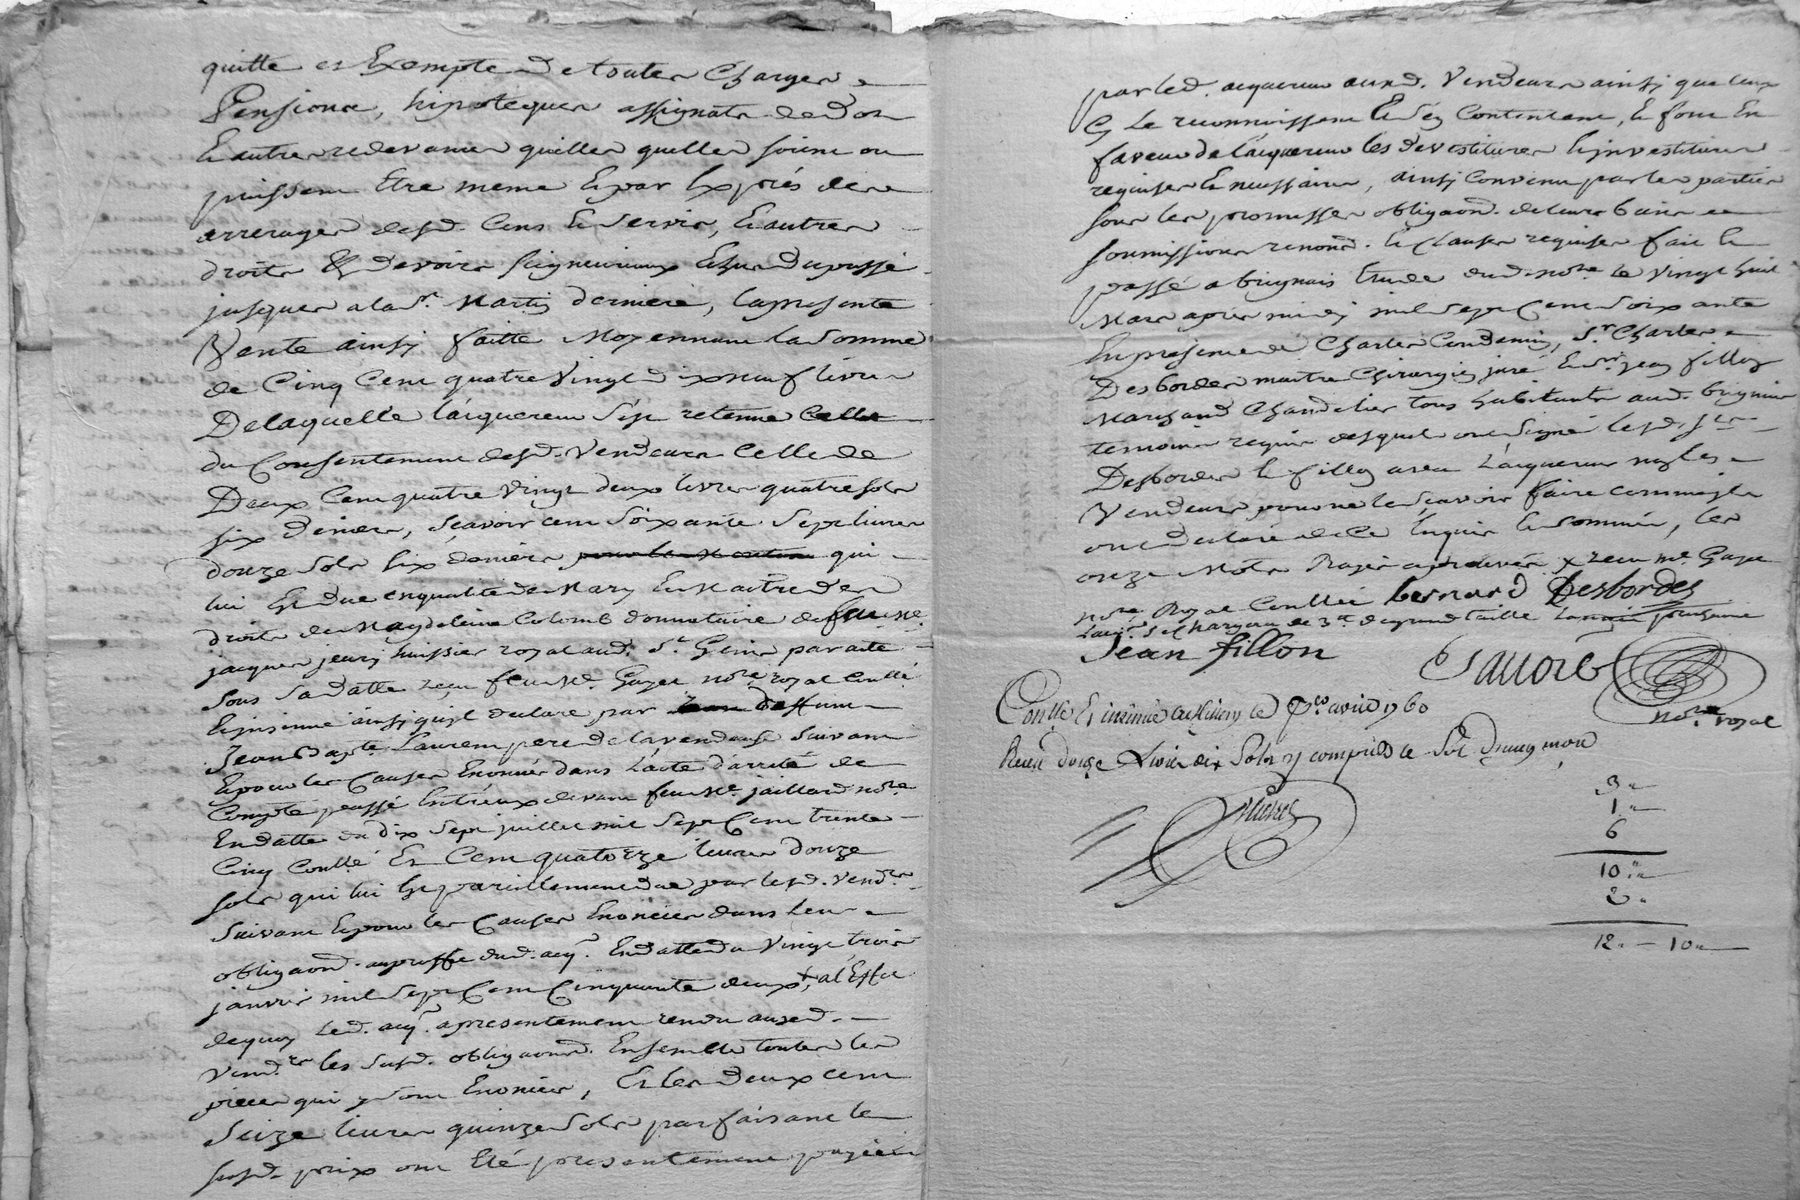 quitte et Exempte de toutes Charges
Pensions, hipoteques assignats de dot
Et autres redevances quelles quelles soient ou
puissent Etre meme Et par Exprés des
arrerages desd. Cens Et Servis, Et autres
droits & devoirs seigneuriaux Echus du passé
jusques a la St. Martin derniere, la presente
Vente ainsy faitte Moyennant la Somme
de Cinq Cent quatre Vingt dixneuf livres
De laquelle l'acquereur s'est retenu Celle
du Consentement desd. Vendeurs Celle de
Deux Cent quatre vingt deux livres quatre sols
six deniers, sçavoir cent soixante sept livres
douze sols six deniers qui
lui Est due en qualité de Mary Et Maitre des
droits de Magdeleine Colomb donnataire de feu Me.
jacques jeury huissier royal aud. St. Genis par acte
sous sa datte reçu feu Me. Guyet nore. royal Contllé
Et insinué ainsi qu'il declare par deffunt
Jean Bapte. Laurent pere de la vendeuse suivant
Et pour les Causes Enoncées dans l'acte d'arreté de
Compte passé Entr'eux devant feu Me. jaillard nore.
En datte du dix sept juillet mil sept Cent trente
Cinq Contllé Et Cent quatorze livres douze
sols qui lui Est pareillement due par lesd. Vendrs.
Suivant Et pour les Causes Enoncées dans leur
obligaond. au proffit dud. acqr. En datte du Vingt trois
janvier mil sept Cent Cinquante deux, a l'Effet
de quoy led. acqr. a presentement rendu auxd.
Vendrs. les susd. obligaons. Ensemble toutes les
pieces qui y sont Enoncées, Et les deux cent
Seize livres quinze sols parfaisant le
susd. prix ont Eté presentement payées
par led. acquereur auxd. Vendeurs ainsy que leurs
Ce Le reconnoissent Et s'en Contentent, Et font En
faveur de l'acquereur les devestitures Et investitures
requises Et necessaires, ainsy Convenu par les parties
sous les promesses obligaons. de leurs biens
soumissions renond. Et Clauses requises fait Et
passé a brignais Etude dud. nore. le Vingt huit
Mars apres midy mil sept Cent Soixante
En presence de Charles Condamin, Sr. Charles
Desbordes maitre Chirurgien juré Et Sr. jean fillon
Marchand Chandelier tous habitants aud. brignais
temoins requis desquels ont signé lesd. Srs.
Desbordes Et fillon avec l'acquereur non les
Vendeurs pour ne le sçavoir faire comme ils
ont declaré de Ce Enquis Et Sommés, les
onze Mots Rayés approuvés x reçu Me. Guyet
nore. Royal Contllé bernard Desbordes
Jean fillon
nore. royal
Contllé Et insinué a Millery le 1er. avril 1760
Reçu douze Livres dix Sols y compris le Sol d'augmon
3"
1"
6
10"
2"
12" — 10"